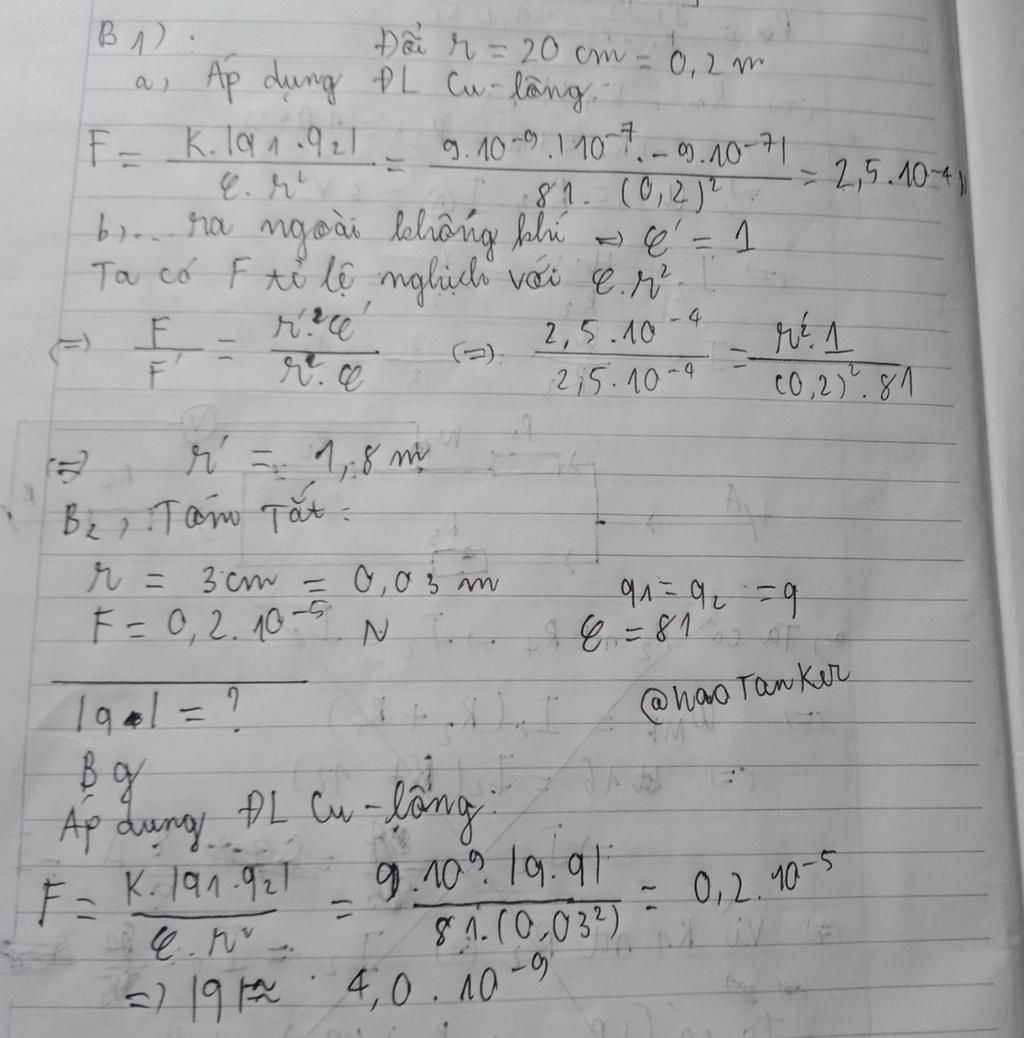 B1): Đổi r = 20 cm = 0,2 m
a, Áp dụng ĐL Cu-lông:
F = K.|q1.q2| / ε.r² = 9.10⁻⁹.|10⁻⁷.-9.10⁻⁷| / 81.(0,2)² = 2,5.10⁻⁴ N
b, ... ra ngoài không khí => ε' = 1
Ta có F tỉ lệ nghịch với ε.r²
(=) F / F' = r'².ε' / r².ε (=) 2,5.10⁻⁴ / 2,5.10⁻⁴ = r'².1 / (0,2)².81
(=) r' = 1,8 m
B2, Tóm Tắt:
r = 3 cm = 0,03 m q1 = q2 = q
F = 0,2.10⁻⁵ N ε = 81
|q| = ? @haoTanker
Bg
Áp dụng ĐL Cu-lông:
F = K.|q1.q2| / ε.r² = 9.10⁹.|q.q| / 81.(0,03²) = 0,2.10⁻⁵
=> |q| ≈ 4,0.10⁻⁹